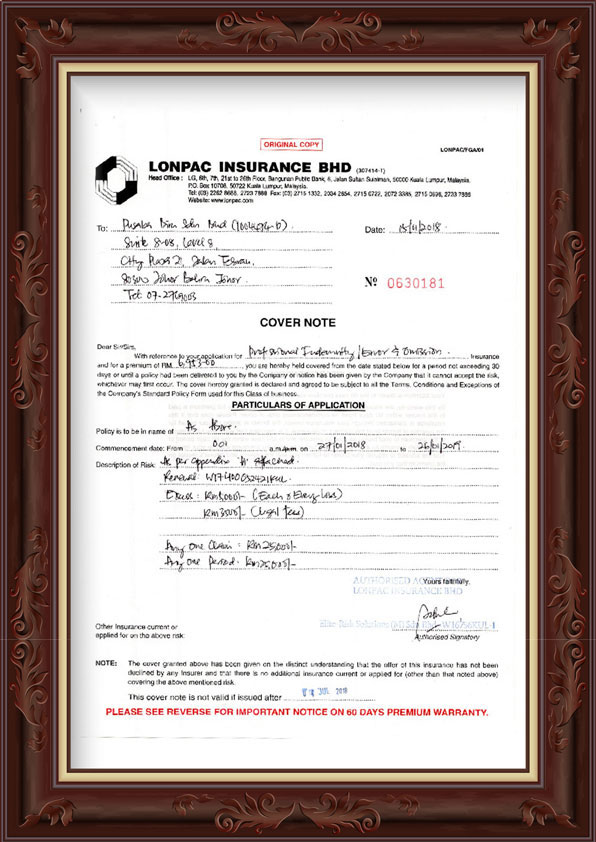 ORIGINAL COPY
LONPAC/FGA/01
LONPAC INSURANCE BHD (307414-T)
Head Office : LG, 6th, 7th, 21st to 26th Floor, Bangunan Public Bank, 6, Jalan Sultan Sulaiman, 50000 Kuala Lumpur, Malaysia.
P.O. Box 10708, 50722 Kuala Lumpur, Malaysia.
Tel: (03) 2262 8688, 2723 7888 Fax: (03) 2715 1332,
Website: www.lonpac.com
To: Bina Sdn Bhd
Date: 2018
Suite 8-08, Level 8,
City Plaza 2, Jalan Tebrau,
Johor Bahru Johor.
Tel: 07-
Nº 0630181
COVER NOTE
Dear Sir/Sirs,
With reference to your application for Professional Indemnity / Error & Omission. Insurance
and for a premium of RM you are hereby held covered from the date stated below for a period not exceeding 30
days or until a policy had been delivered to you by the Company or notice has been given by the Company that it cannot accept the risk,
whichever may first occur. The cover hereby granted is declared and agreed to be subject to all the Terms, Conditions and Exceptions of
the Company's Standard Policy Form used for this Class of business.
PARTICULARS OF APPLICATION
Policy is to be in name of As Above.
Commencement date: From 0.01 a.m/pm on 27/01/2018 to 26/01/2019
Description of Risk: As per appendix 'A' attached.
Renewal:
Excess: (Each & Every loss)
(Legal fees)
Any One Claim : RM250,000/-
Any One Period : RM250,000/-
Yours faithfully,
LONPAC INSURANCE BHD
Other Insurance current or
applied for on the above risk:
Authorised Signatory
NOTE: The cover granted above has been given on the distinct understanding that the offer of this insurance has not been
declined by any Insurer and that there is no additional insurance current or applied for (other than that noted above)
covering the above mentioned risk.
This cover note is not valid if issued after JUL 2018
PLEASE SEE REVERSE FOR IMPORTANT NOTICE ON 60 DAYS PREMIUM WARRANTY.